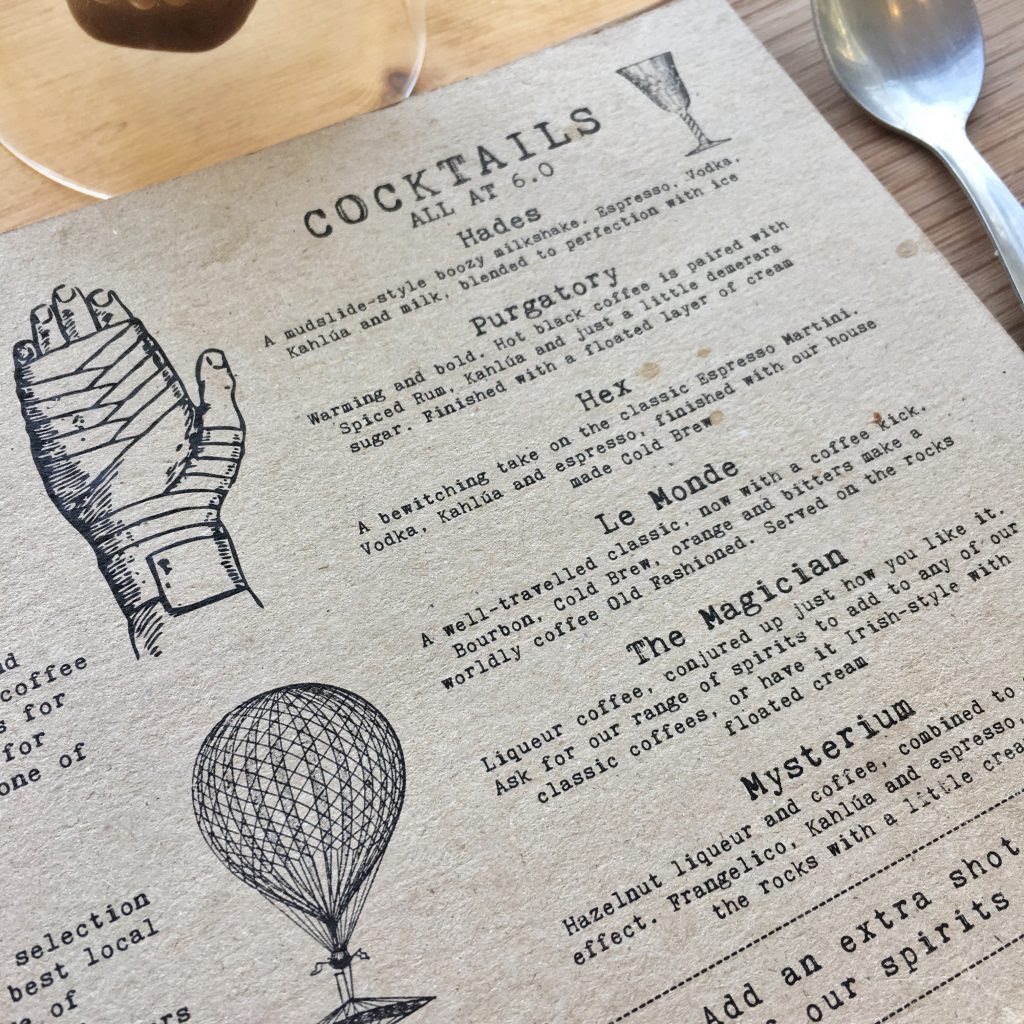 COCKTAILS
ALL AT 6.0
Hades
A mudslide-style boozy milkshake. Espresso, Vodka,
Kahlúa and milk, blended to perfection with ice
Purgatory
Warming and bold. Hot black coffee is paired with
Spiced Rum, Kahlúa and just a little demerara
sugar. Finished with a floated layer of cream
Hex
A bewitching take on the classic Espresso Martini.
Vodka, Kahlúa and espresso, finished with our house
made Cold Brew
Le Monde
A well-travelled classic, now with a coffee kick.
Bourbon, Cold Brew, orange and bitters make a
worldly coffee Old Fashioned. Served on the rocks
The Magician
Liqueur coffee, conjured up just how you like it.
Ask for our range of spirits to add to any of our
classic coffees, or have it Irish-style with
floated cream
Mysterium
Hazelnut liqueur and coffee, combined to
effect. Frangelico, Kahlúa and espresso,
the rocks with a little
Add an extra shot
our spirits
coffee
for
for
one of
selection
best local
of